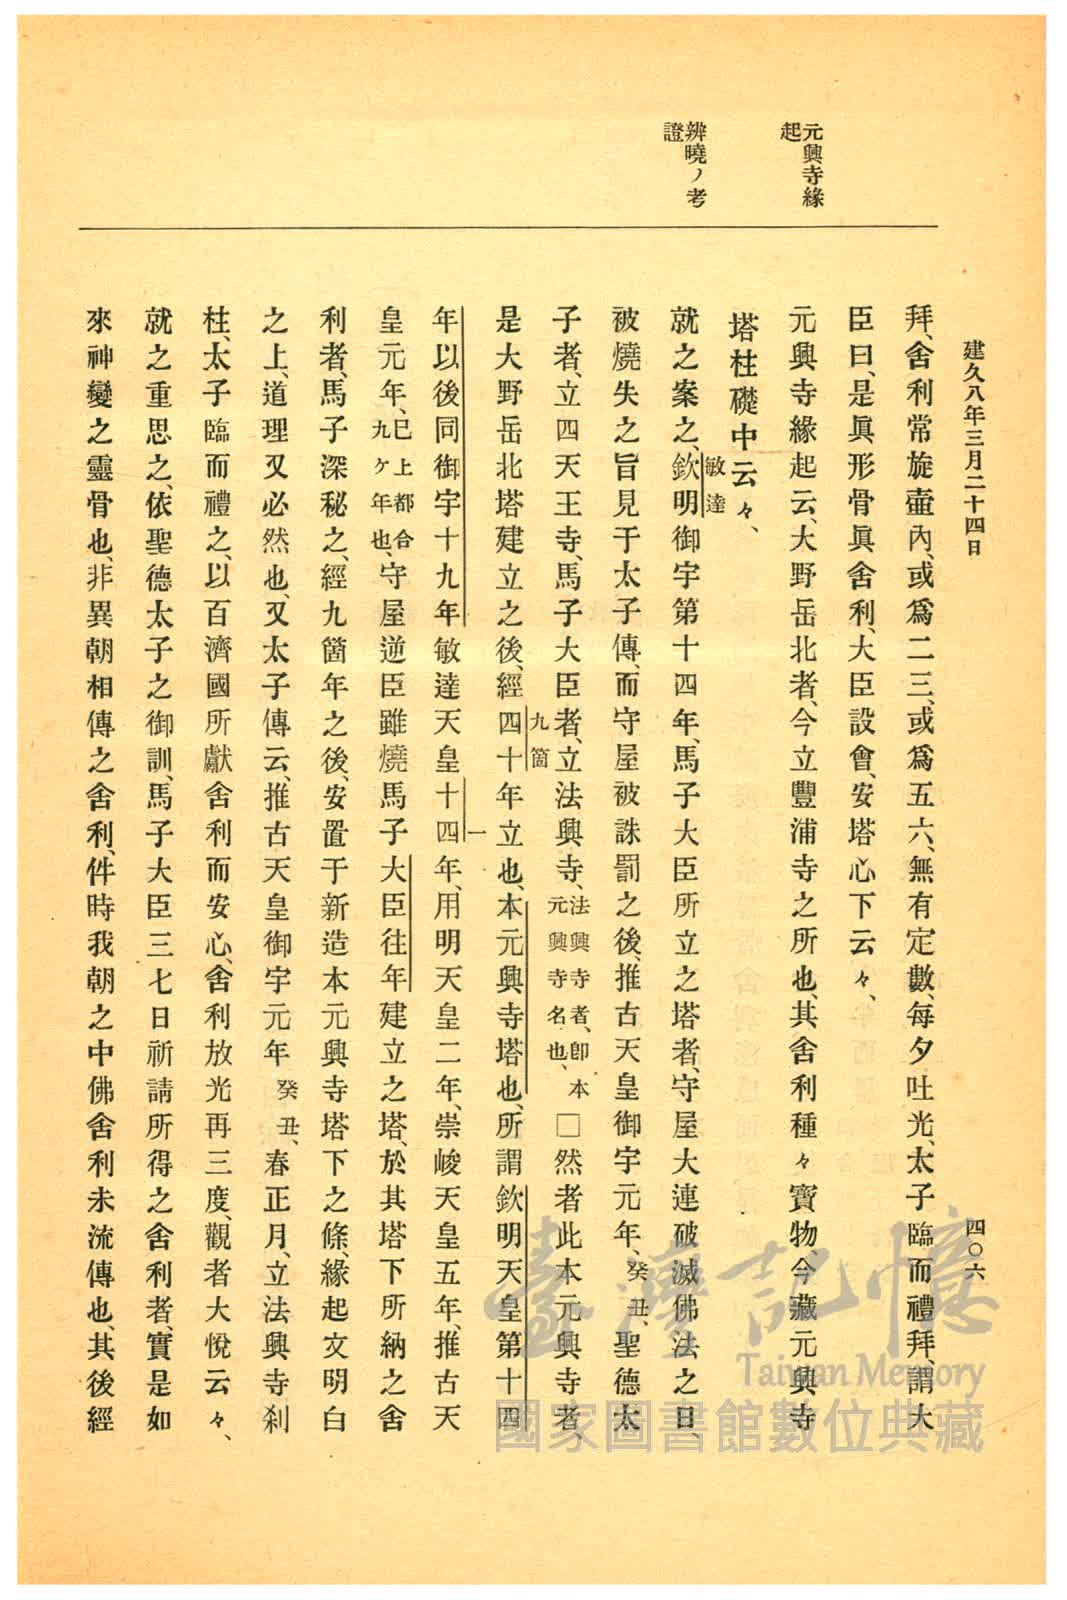 建久八年三月二十四日
四〇六
元興寺緣
起
辨曉ノ考
證
拜、舍利常旋壷內、或爲二三、或爲五六、無有定數、每夕吐光、太子臨而禮拜、謂大
臣曰、是眞形骨眞舍利、大臣設會、安塔心下云々、
元興寺緣起云、大野岳北者、今立豐浦寺之所也、其舍利種々寶物、今藏元興寺
塔柱礎中云々、
敏達
就之案之、欽明御宇第十四年、馬子大臣所立之塔者、守屋大連破滅佛法之日、
被燒失之旨見于太子傳、而守屋被誅罰之後、推古天皇御宇元年、癸丑、聖德太
子者、立四天王寺、馬子大臣者、立法興寺、法興寺者、卽本元興寺名也、□然者此本元興寺者、
九箇
是大野岳北塔建立之後、經四十年立也、本元興寺塔也、所謂欽明天皇第十四
一
年以後同御宇十九年敏達天皇十四年、用明天皇二年、崇峻天皇五年、推古天
皇元年、已上都合九ケ年也、守屋逆臣雖燒馬子大臣往年建立之塔、於其塔下所納之舍
利者、馬子深秘之、經九箇年之後、安置于新造本元興寺塔下之條、緣起文明白
之上、道理又必然也、又太子傳云、推古天皇御宇元年癸丑、春正月、立法興寺刹
柱、太子臨而禮之、以百濟國所獻舍利而安心、舍利放光再三度、觀者大悅云々、
就之重思之、依聖德太子之御訓、馬子大臣三七日祈請所得之舍利者、實是如
來神變之靈骨也、非異朝相傳之舍利、件時我朝之中佛舍利未流傳也、其後經
臺灣記憶
Taiwan Memory
國家圖書館數位典藏